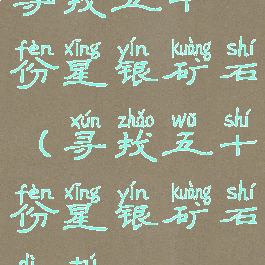 寻找五十
fèn xīng yín kuàng shí
份星银矿石
xún zhǎo wǔ shí
(寻找五十
fèn xīng yín kuàng shí
份星银矿石